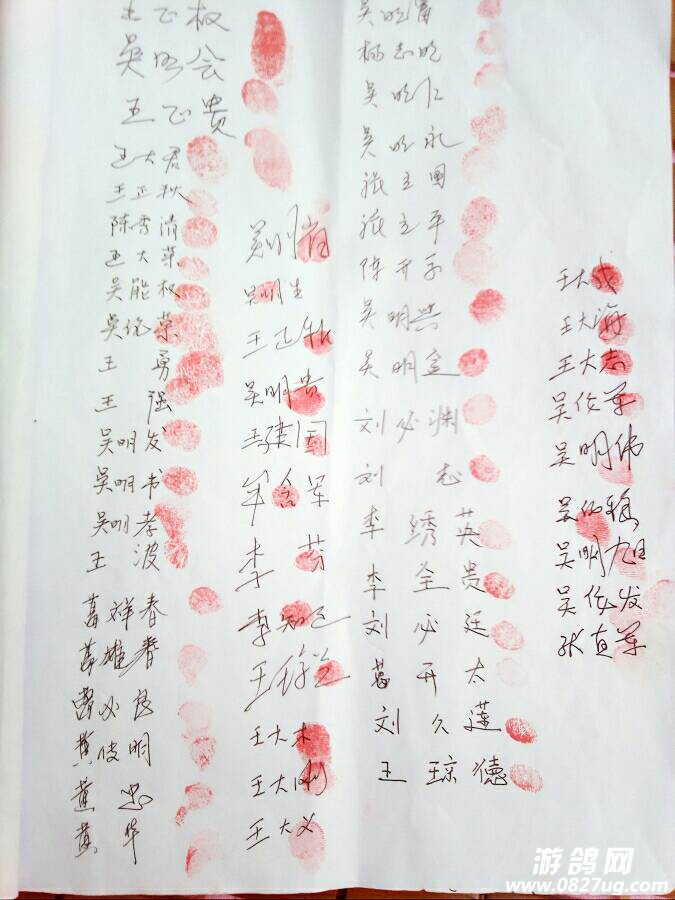 王正权
吴明会
王正贵
王大君
王正秋
陈秀清
王大荣
吴能权
吴俭荣
王勇
王强
吴明发
吴明书
吴明孝
王波
葛祥春
葛雄春
曹必良
黄俊明
黄忠
黄华
吴明生
吴明贵
王建国
牟含军
李芬
李知己
王大木
王大刚
王大义
吴明富
杨志明
吴明仁
吴明永
张立国
张立平
陈开手
吴明兴
吴明宣
刘必渊
刘志
李绣英
李全贵
刘必廷
葛开太
刘久莲
王琼德
王大成
王大海
王大志
吴俭军
吴明伟
吴明旭
吴俭发
张直军
游鸽网
www.0827ug.com